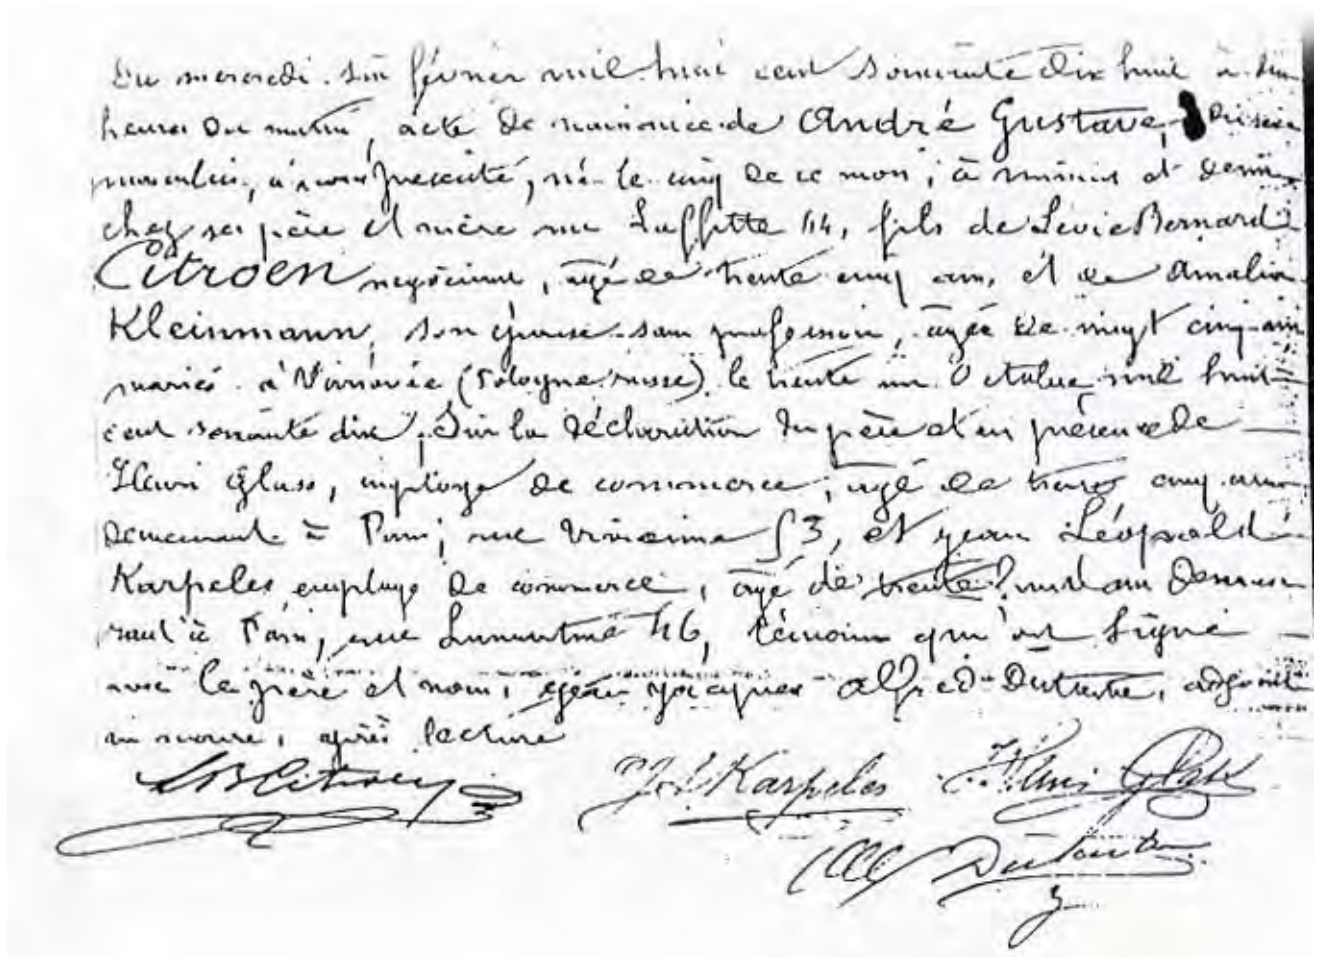 Du mercredi six février mil huit cent soixante dix huit à dix
heures du matin, acte de naissance de André Gustave, du sexe
masculin, à nous présenté, né le cinq de ce mois, à minuit et demi
chez ses père et mère rue Laffitte 44, fils de Levie Bernard
Citroen négociant, âgé de trente cinq ans, et de Amalia
Kleinmann, son épouse sans profession, âgée de vingt cinq ans
mariés à Varsovie (Pologne russe) le trente un Octobre mil huit
cent soixante dix, Sur la déclaration du père et en présence de
Henri Glass, employé de commerce, âgé de trente cinq ans
demeurant à Paris, rue Vivienne 53, et Jean Léopold
Karpeles employé de commerce, âgé de trente huit ans demeu
rant à Paris, rue Lamartine 46, témoins qui ont signé
avec le père et nous, Jean Jacques Alfred Dutartre, adjoint
au maire, après lecture
LB Citroen J. L Karpeles Henri Glass
Alf Dutartre